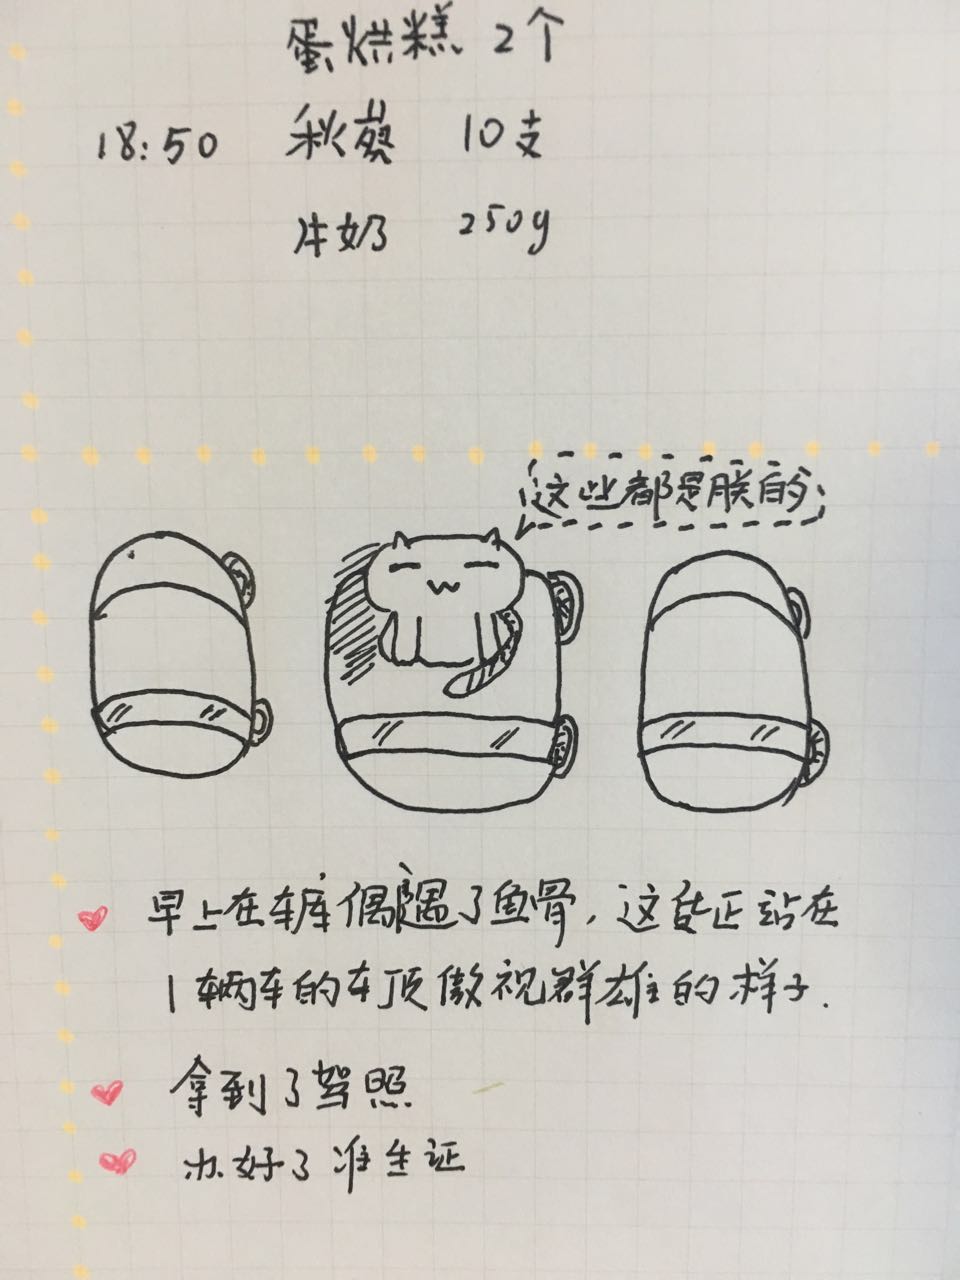 蛋烘糕 2个
18:50 秋葵 10支
牛奶 250g
这些都是朕的
早上在车库偶遇了鱼骨,这货正站在
1辆车的车顶傲视群雄的样子.
拿到了驾照
办好了准生证